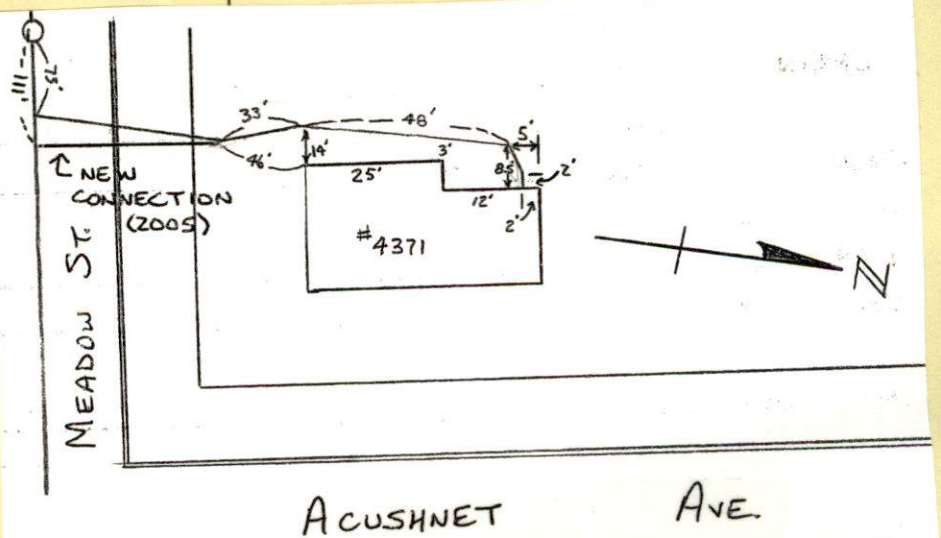 111'
75'
33'
48'
5'
46'
14'
3'
8.5'
2'
25'
12'
2'
NEW
CONNECTION
(2005)
#4371
N
MEADOW ST.
ACUSHNET AVE.